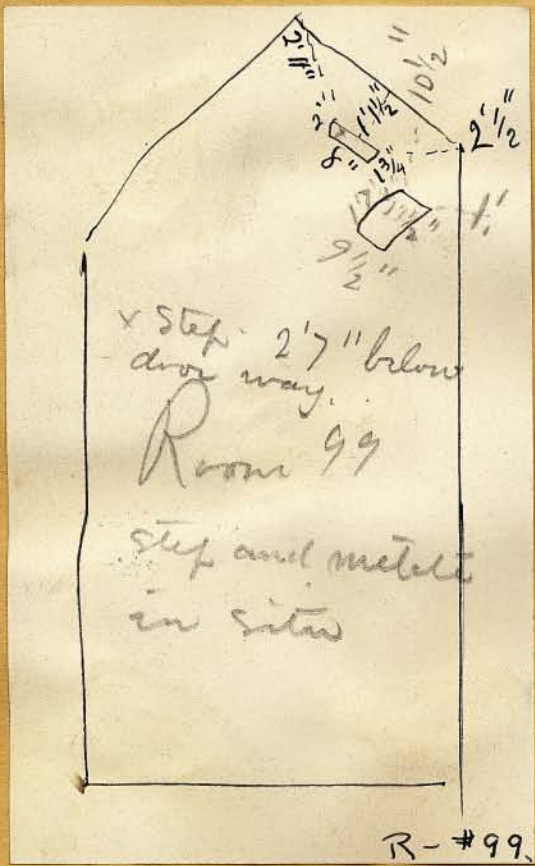 2' 11"
10 1/2"
2"
1' 1 1/2
2' 1/2"
8"
1 3/4
1'
9 1/2"
x Step 2'7" below
door way.
Room 99
Step and metate
in situ
R-#99.